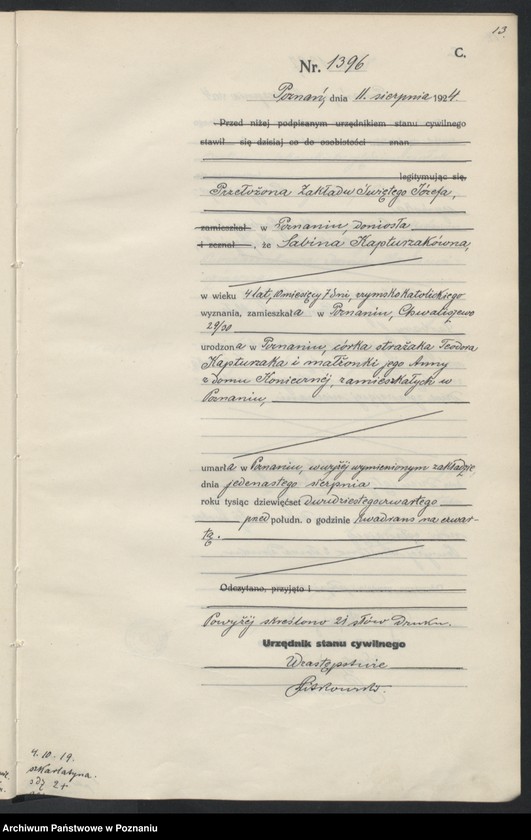 13.
C.
Nr. 1396
Poznań, dnia 11. sierpnia 1924
Przed niżej podpisanym urzędnikiem stanu cywilnego
stawił się dzisiaj co do osobistości znan
legitymując się,
Przełożona Zakładu Świętego Józefa,
zamieszkał w Poznaniu, doniosła
i zeznał , że Sabina Kapturzakówna,
w wieku 4 lat, 10 miesięcy 7 dni, rzymsko katolickiego
wyznania, zamieszkała w Poznaniu, Chwaliszewo
29/30
urodzona w Poznaniu, córka strażaka Teodora
Kapturzaka i małżonki jego Anny
z domu zamieszkałych w
Poznaniu,
umarła w Poznaniu, w wyżej wymienionym zakładzie
dnia jedenastego sierpnia
roku tysiąc dziewięćset dwudziestegoczwartego
przed połudn. o godzinie kwadrans na czwar-
tą.
Odczytano, przyjęto i
Powyżej skreślono 21 słów druku.
Urzędnik stanu cywilnego
W zastępstwie
4. 10. 19.
szkarlatyna.
Archiwum Państwowe w Poznaniu